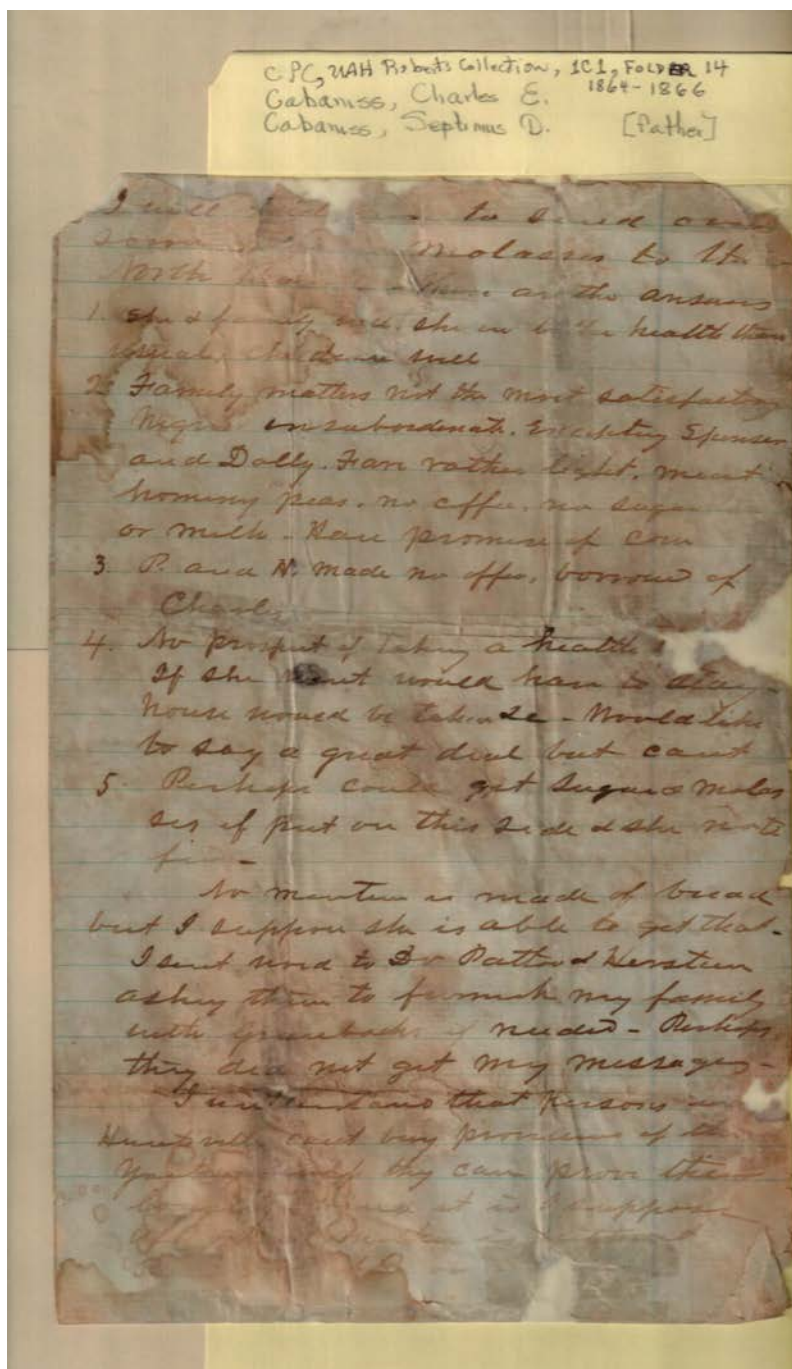 CPC, UAH Roberts Collection, 1C1, FOLDER 14
1864-1866
Cabaniss, Charles E.
Cabaniss, Septimus D. [Father]
I will to send
some molasses to the
North are the answers
1. She & family well. She in better health than
usual. Children well
2. Family matters not the most satisfactory
Negro insubordinate. Excepting Spenser
and Dolly. Fare rather light. meat
hominy peas. no coffee. no sugar
or milk - Have promise of corn
3. P. and N. made no offer. borrowed of
Charley
4. No prospect of taking a
If she went would have to stay -
house would be taken - Would like
to say a great deal but cant
5. Perhaps could get Sugar & molas
ses if put on this side & she noti
fied -
No mention is made of bread
but I suppose she is able to get that -
I sent word to Dr Patton & Herstein
asking them to furnish my family
with greenbacks if needed - Perhaps
they did not get my messages -
I understand that persons in
Huntsville cant buy provisions of the
they can prove them
it is I suppose